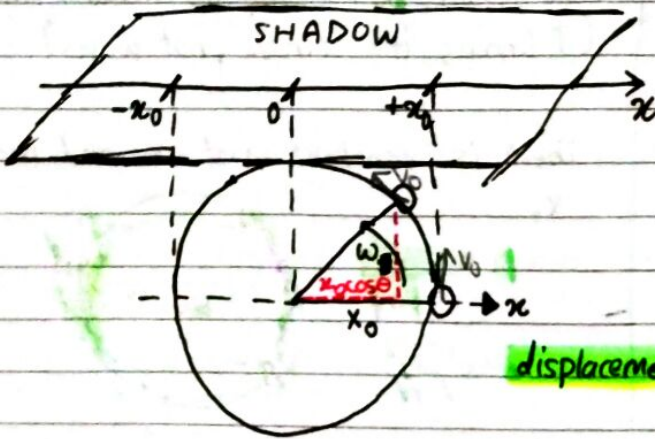 SHADOW
-x₀ 0 +x₀ x
v₀
ω
v₀
x₀cosθ
x₀
x
displaceme